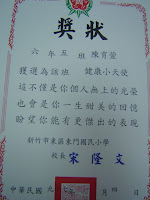 獎狀
六年五班 陳育萱
獲選為該班 健康小天使
這不僅是你個人無上的光榮
也會是你一生甜美的回憶
盼望你能有更傑出的表現
新竹市東區東門國民小學
校長 宋隆文
中華民國九 月四日